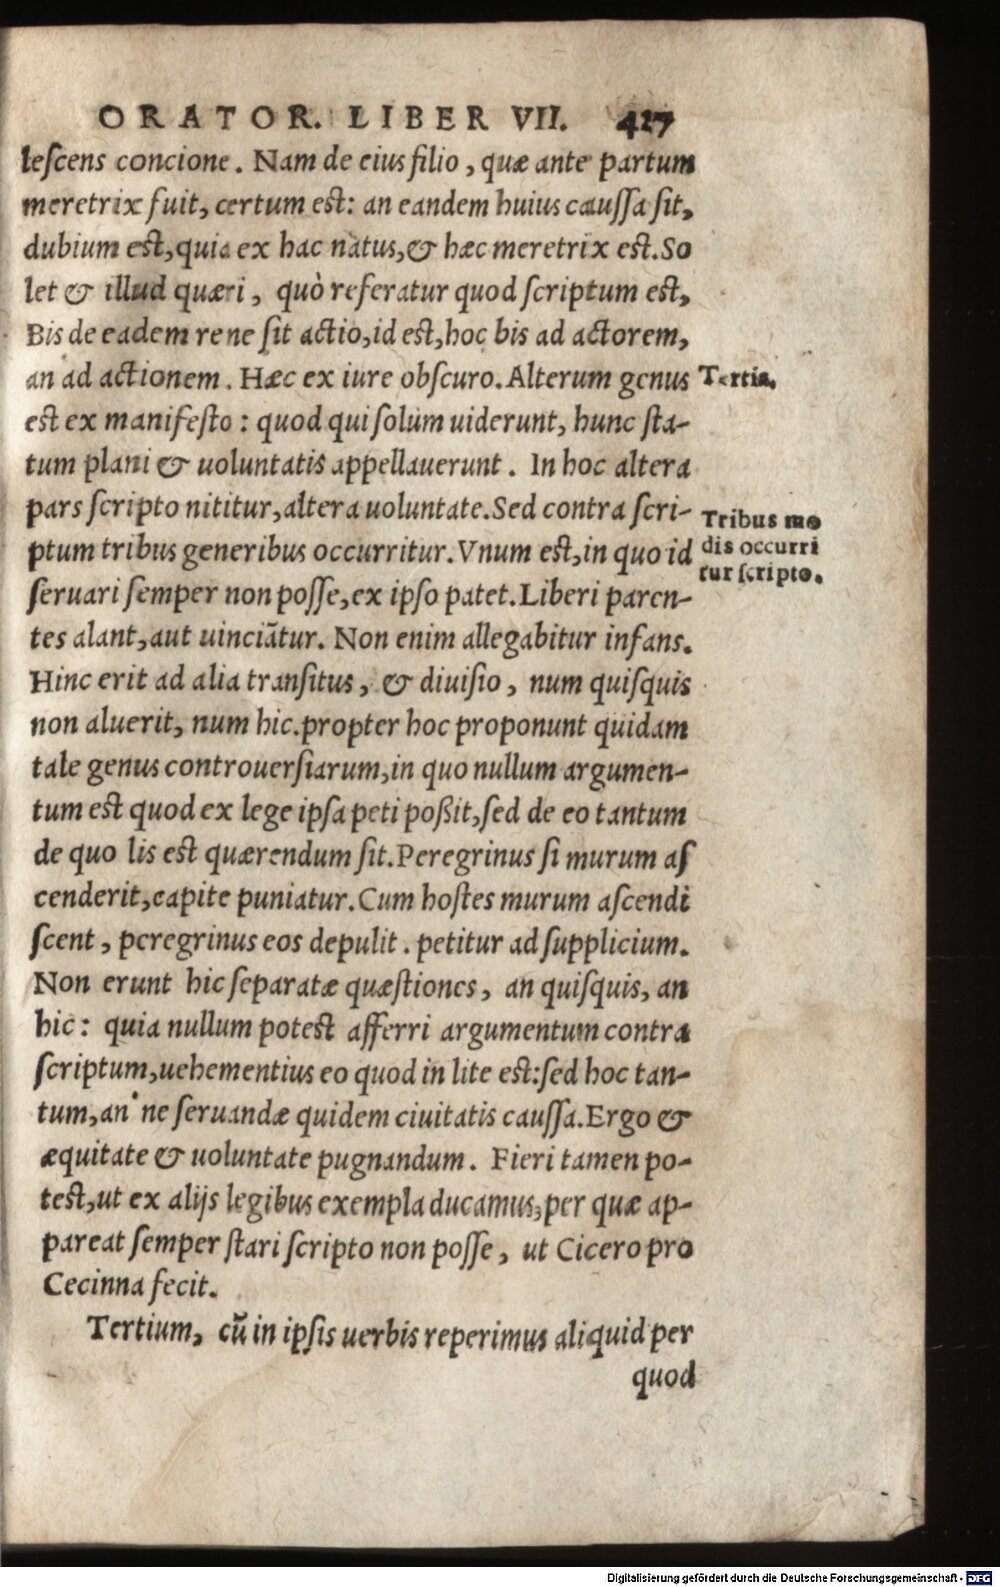 ORATOR. LIBER VII. 427
leſcens concione. Nam de eius filio, quæ ante partum
meretrix fuit, certum est: an eandem huius cauſſa ſit,
dubium est, quia ex hac natus, & hæc meretrix est. So
let & illud quæri, quò referatur quod ſcriptum est,
Bis de eadem re ne ſit actio, id est, hoc bis ad actorem,
an ad actionem. Hæc ex iure obſcuro. Alterum genus
Tertia.
est ex manifeſto: quod qui ſolum uiderunt, hunc ſta-
tum plani & uoluntatis appellauerunt. In hoc altera
pars ſcripto nititur, altera uoluntate. Sed contra ſcri-
Tribus mo
ptum tribus generibus occurritur. Vnum est, in quo id
dis occurri
ſeruari ſemper non poſſe, ex ipſo patet. Liberi paren-
tur ſcripto.
tes alant, aut uinciãtur. Non enim allegabitur infans.
Hinc erit ad alia tranſitus, & diuiſio, num quiſquis
non aluerit, num hic. propter hoc proponunt quidam
tale genus controuerſiarum, in quo nullum argumen-
tum est quod ex lege ipſa peti poßit, ſed de eo tantum
de quo lis est quærendum ſit. Peregrinus ſi murum aſ
cenderit, capite puniatur. Cum hoſtes murum aſcendi
ſcent, peregrinus eos depulit. petitur ad ſupplicium.
Non erunt hic ſeparatæ quæſtiones, an quiſquis, an
hic: quia nullum potest afferri argumentum contra
ſcriptum, uehementius eo quod in lite est: ſed hoc tan-
tum, an ne ſeruandæ quidem ciuitatis cauſſa. Ergo &
æquitate & uoluntate pugnandum. Fieri tamen po-
test, ut ex alijs legibus exempla ducamus, per quæ ap-
pareat ſemper ſtari ſcripto non poſſe, ut Cicero pro
Cecinna fecit.
Tertium, cũ in ipſis uerbis reperimus aliquid per
quod
Digitalisierung gefördert durch die Deutsche Forschungsgemeinschaft - DFG